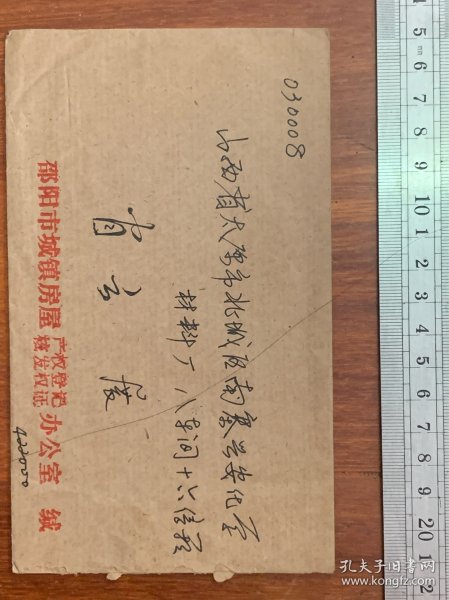 030008
山西省太原市北城区南寨兴安化学
材料厂八车间十六信箱
肖云 段
邵阳市城镇房屋产权登记核发权证办公室 缄
422000
孔夫子旧书网
www.kongfz.com
5 mm 6 7 8 9 10 1 2 3 4 5 6 7 8 9 20 1 2